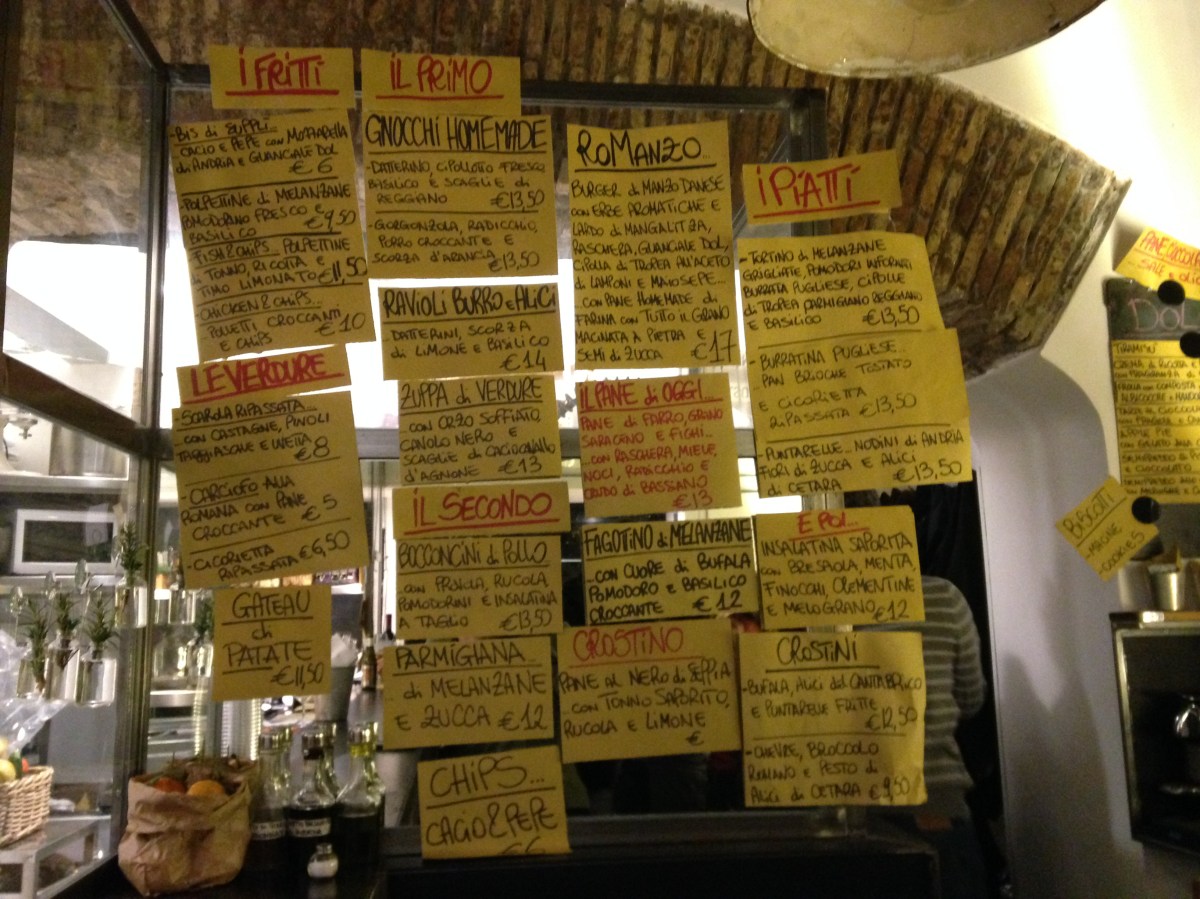 I FRITTI
BIS di SUPPLÌ...
CACIO e PEPE con MOZZARELLA
di ANDRIA e GUANCIALE DOL
€6
POLPETTINE di MELANZANE
POMODORINO FRESCO €9,50
BASILICO
FISH & CHIPS... POLPETTINE
di TONNO, RICOTTA e
TIMO LIMONATO €11,50
-CHICKEN & CHIPS...
POLLETTI CROCCANTI
e CHIPS €10
LE VERDURE...
SCAROLA RIPASSATA...
con CASTAGNE, PINOLI
TAGGIASCHE e UVETTA €8
-CARCIOFO ALLA
ROMANA con PANE
CROCCANTE €5
-CICORIETTA
RIPASSATA €6,50
GATEAU
di
PATATE
€11,50
IL PRIMO
GNOCCHI HOMEMADE
-DATTERINO, CIPOLLOTTO FRESCO
BASILICO E SCAGLIE di
REGGIANO €13,50
-GORGONZOLA, RADICCHIO,
PORRO CROCCANTE E
SCORZA d'ARANCIA €13,50
RAVIOLI BURRO e ALICI
-DATTERINI, SCORZA
di LIMONE e BASILICO
€14
ZUPPA di VERDURE
...CON ORZO SOFFIATO
CAVOLO NERO E
SCAGLIE di CACIOCAVALLO
d'AGNONE €13
IL SECONDO
BOCCONCINI di POLLO
CON RUCOLA,
POMODORINI e INSALATINA
A TAGLIO €13,50
PARMIGIANA...
di MELANZANE
E ZUCCA €12
CHIPS...
CACIO & PEPE
ROMANZO...
BURGER di MANZO DANESE
con ERBE AROMATICHE E
LARDO di MANGALITZA,
RASCHERA, GUANCIALE DOL,
CIPOLLA di TROPEA ALL'ACETO
di LAMPONI E MAIOSEPE...
...CON PANE HOMEMADE di
FARINA con TUTTO il GRANO
MACINATA A PIETRA E
SEMI di ZUCCA €17
IL PANE di OGGI...
PANE di FARRO, GRANO
SARACENO E FICHI...
...CON RASCHERA, MIELE,
NOCI, RADICCHIO E
CRUDO di BASSANO
€13
FAGOTTINO di MELANZANE
...CON CUORE di BUFALA
POMODORO E BASILICO
CROCCANTE €12
CROSTINO
PANE AL NERO di SEPPIA
CON TONNO SAPORITO,
RUCOLA E LIMONE
€
I PIATTI
-TORTINO di MELANZANE
GRIGLIATE, POMODORI INFORNATI
BURRATA PUGLIESE, CIPOLLE
di TROPEA PARMIGIANO REGGIANO
E BASILICO €13,50
-BURRATINA PUGLIESE...
PAN BRIOCHE TOSTATO
E CICORIETTA
RIPASSATA €13,50
-PUNTARELLE... NODINI di ANDRIA
FIORI di ZUCCA E ALICI
di CETARA €13,50
E POI...
INSALATINA SAPORITA
con BRESAOLA, MENTA,
FINOCCHI, CLEMENTINE
E MELOGRANO €12
CROSTINI
-BUFALA, ALICI del CANTABRICO
E PUNTARELLE FRITTE
€12,50
-CHEVRE, BROCCOLO
ROMANO E PESTO di
ALICI di CETARA €9,50
DOL
TIRAMISÙ
CREMA di RICOTTA
BISCOTTI
-COOKIES